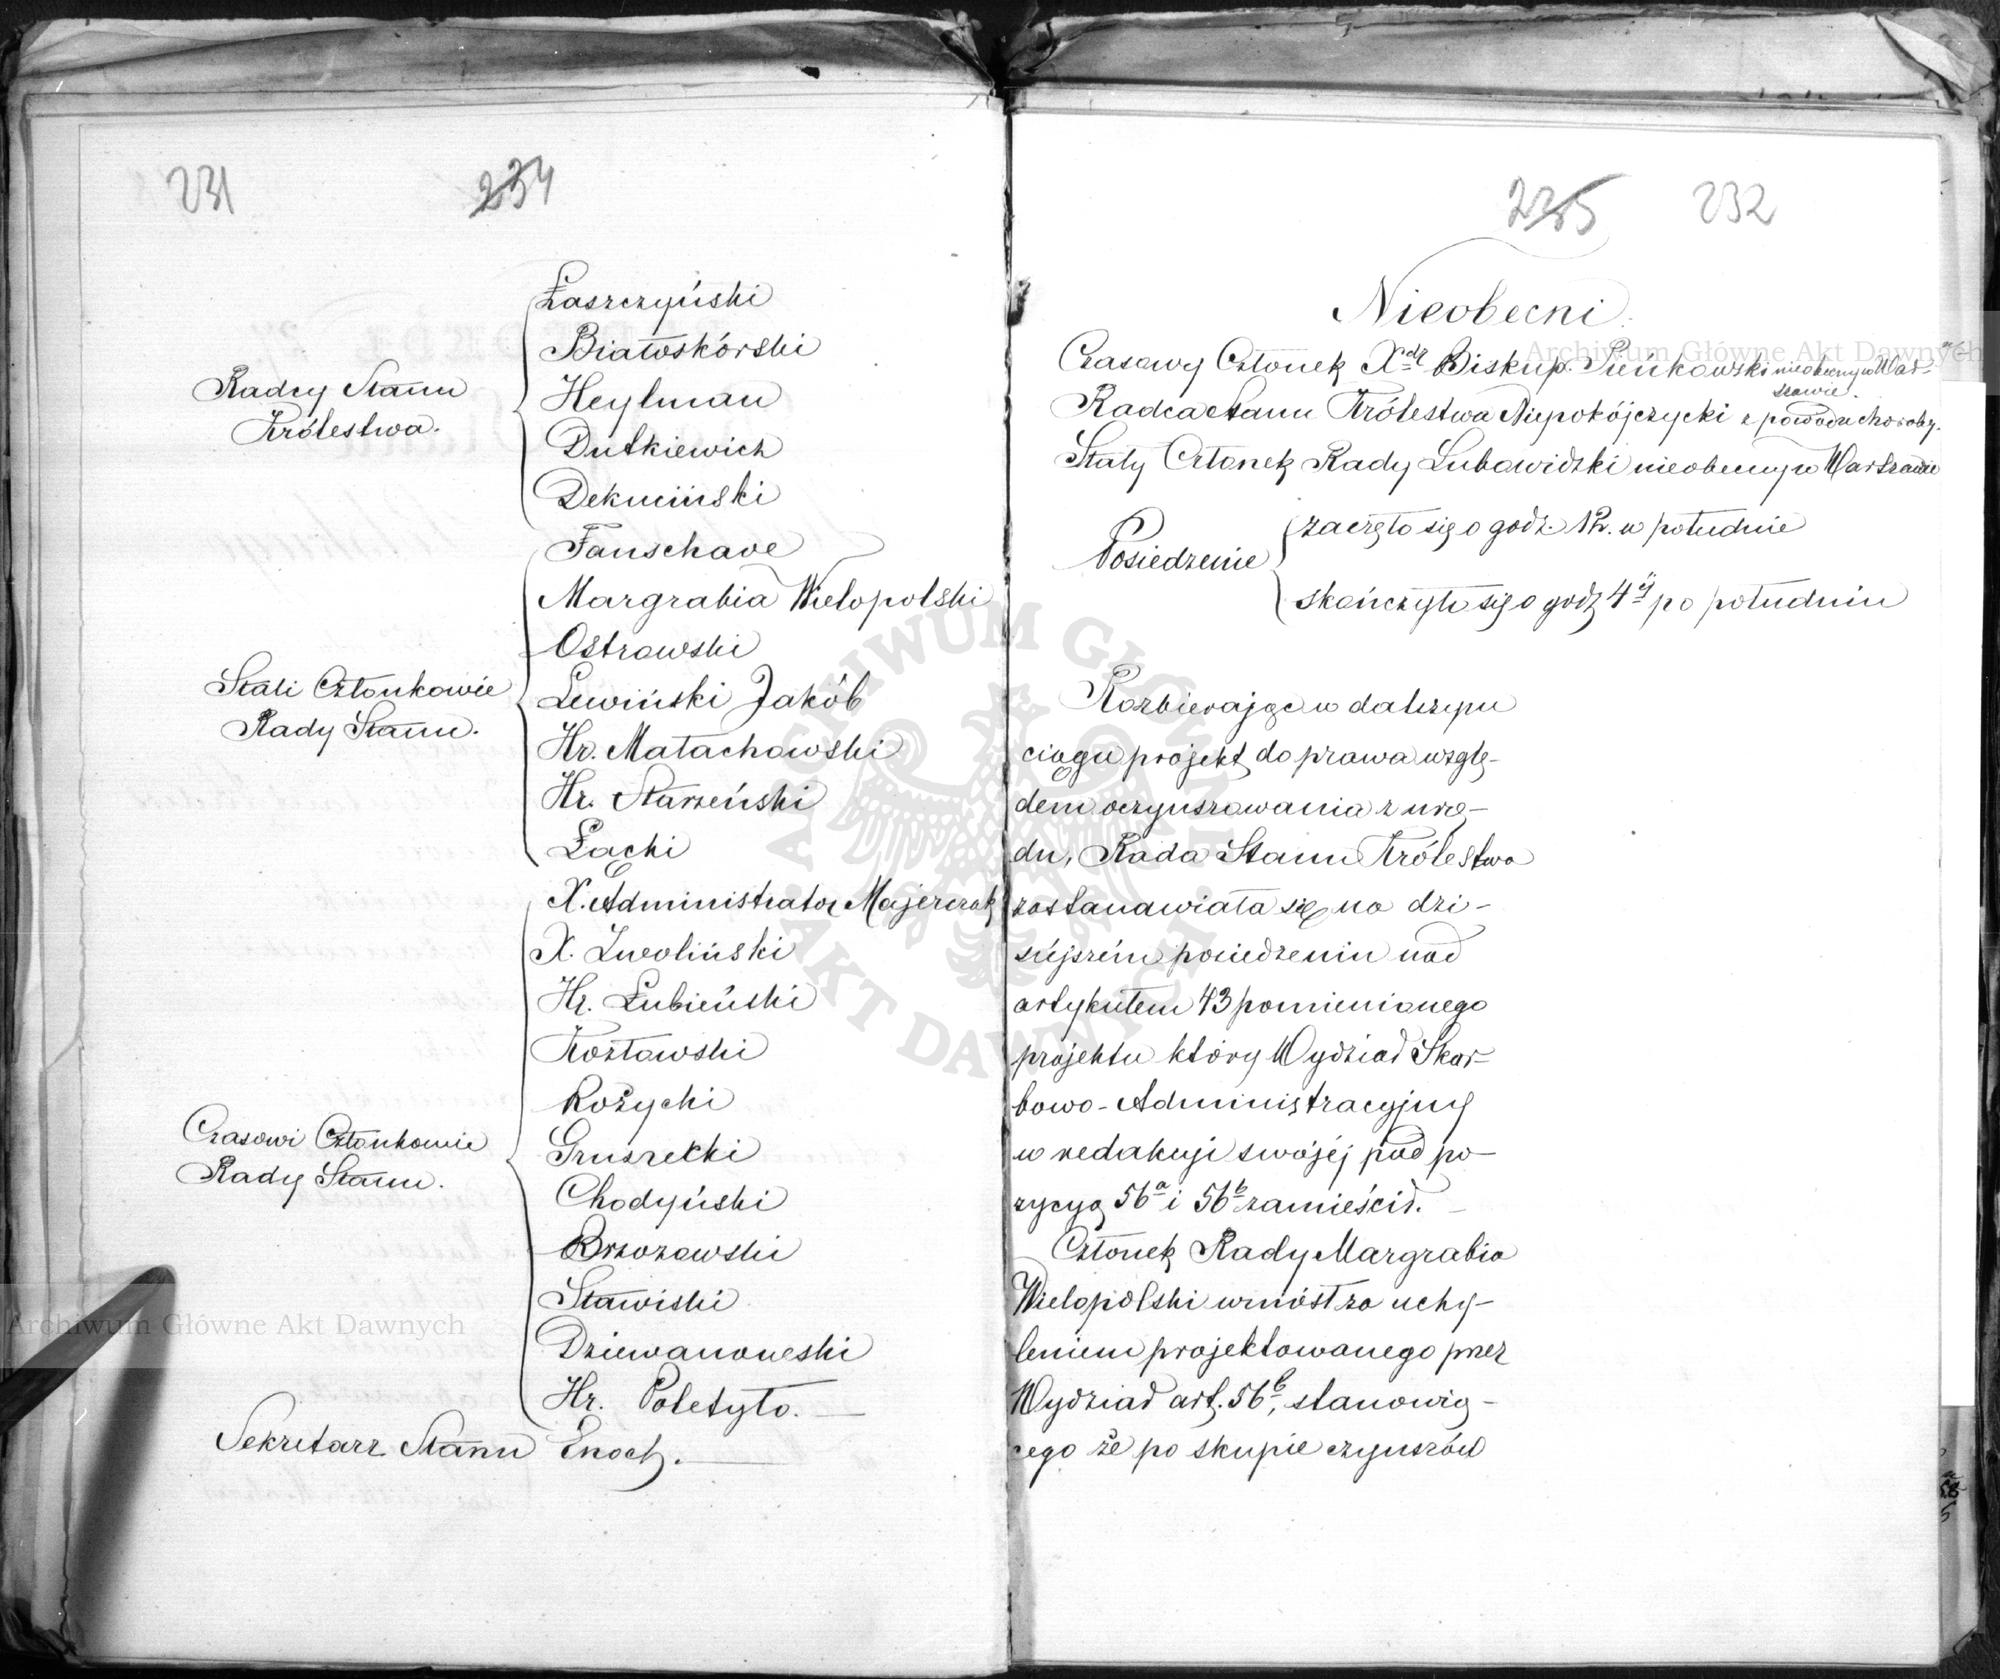 231 234
Łaszczyński
Białoskórski
Radcy Stanu
Królestwa.
Heylman
Dutkiewich
Dekuciński
Fanschave
Margrabia Wielopolski
Ostrowski
Stali Członkowie
Rady Stanu.
Lewiński Jakób
Hr. Małachowski
Hr. Starzeński
Łacki
X. Administrator Majerczak
X. Zwoliński
Hr. Łubieński
Kozłowski
Rożycki
Czasowi Członkowie
Rady Stanu.
Gruszecki
Chodyński
Brzozowski
Stawiski
Dziewanowski
Hr. Poletyło.
Sekretarz Stanu Enoch.
235 232
Nieobecni.
Czasowy Członek Xdz Biskup. Pieńkowski nieobecny w War-
szawie.
Radca Stanu Królestwa Niepokójczycki z powodu choroby.
Stały Członek Rady Lubowidzki nieobecny w Warszawie
Posiedzenie
zaczęło się o godz. 12. w południe
skończyło się o godz 4ej po południu
Rozbierając w dalszym
ciągu projekt do prawa wzglę-
dem oczynszowania z urzę-
du, Rada Stanu Królestwa
zastanawiała się na dzi-
siéjszém posiedzeniu nad
artykułem 43 pomienionego
projektu który Wydział Skar-
bowo-Administracyjny
w redakcji swojéj pod po-
zycyą 56a i 56b zamieścił.
Członek Rady Margrabia
Wielopolski wniósł za uchy-
leniem projektowanego przez
Wydział art. 56b, stanowią-
cego że po skupie czynszów
Archiwum Główne Akt Dawnych
Archiwum Główne Akt Dawnych
ARCHIWUM GŁÓWNE AKT DAWNYCH